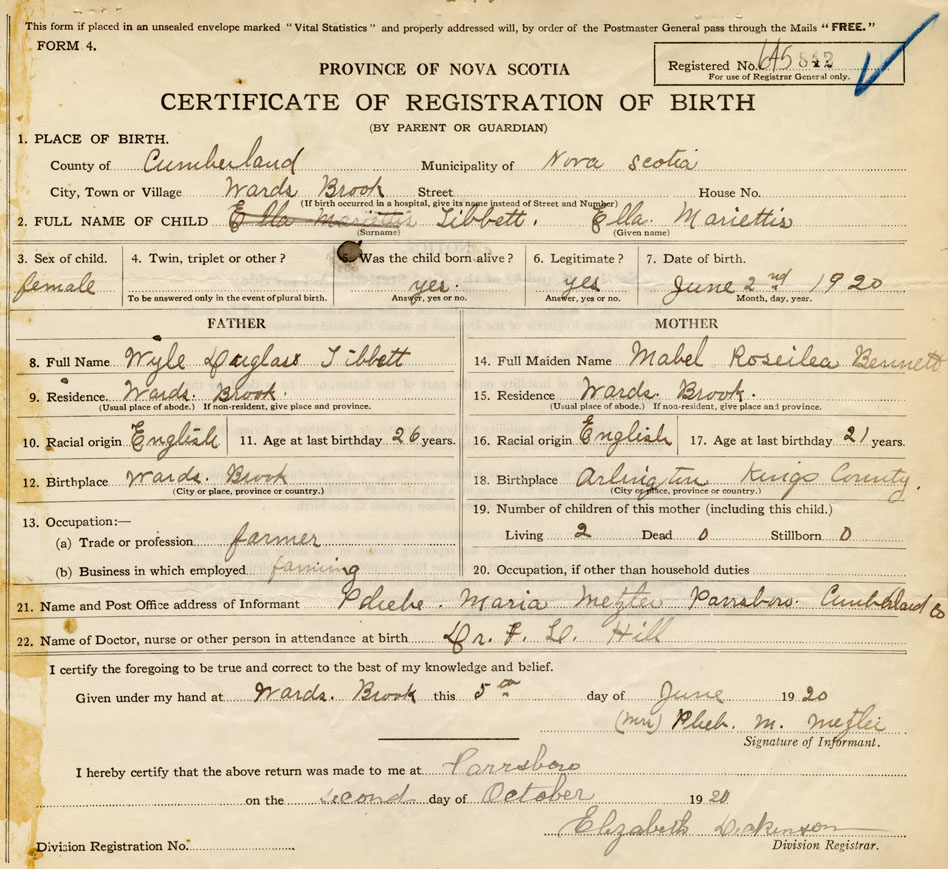 This form if placed in an unsealed envelope marked "Vital Statistics" and properly addressed will, by order of the Postmaster General pass through the Mails "FREE."
FORM 4.
Registered No. 645842
For use of Registrar General only.
PROVINCE OF NOVA SCOTIA
CERTIFICATE OF REGISTRATION OF BIRTH
(BY PARENT OR GUARDIAN)
1. PLACE OF BIRTH.
County of Cumberland Municipality of Nova Scotia
City, Town or Village Wards Brook Street House No.
(If birth occurred in a hospital, give its name instead of Street and Number)
2. FULL NAME OF CHILD Ella Mariettis Tibbett. Ella Mariettis
(Surname) (Given name)
3. Sex of child. 4. Twin, triplet or other? 5. Was the child born alive? 6. Legitimate? 7. Date of birth.
female yes. yes June 2nd 1920
To be answered only in the event of plural birth. Answer, yes or no. Answer, yes or no. Month, day, year.
FATHER MOTHER
8. Full Name Wyle Duglass Tibbett 14. Full Maiden Name Mabel Roseilea Bennett
9. Residence. Wards. Brook. 15. Residence Wards. Brook.
(Usual place of abode.) If non-resident, give place and province. (Usual place of abode.) If non-resident, give place and province.
10. Racial origin English 11. Age at last birthday 26 years. 16. Racial origin English 17. Age at last birthday 21 years.
12. Birthplace Wards. Brook 18. Birthplace Arlington Kings County.
(City or place, province or country.) (City or place, province or country.)
13. Occupation:— 19. Number of children of this mother (including this child.)
(a) Trade or profession farmer Living 2 Dead 0 Stillborn 0
(b) Business in which employed farming 20. Occupation, if other than household duties
21. Name and Post Office address of Informant Phebe. Maria Metzler Parrsboro. Cumberland Co
22. Name of Doctor, nurse or other person in attendance at birth Dr. F. L. Hill
I certify the foregoing to be true and correct to the best of my knowledge and belief.
Given under my hand at Wards. Brook this 5th day of June 1920
(Mrs) Pheb. M. Metzler
Signature of Informant.
I hereby certify that the above return was made to me at Parrsboro
on the second day of October 1920
Elizabeth Dickinson
Division Registration No. Division Registrar.